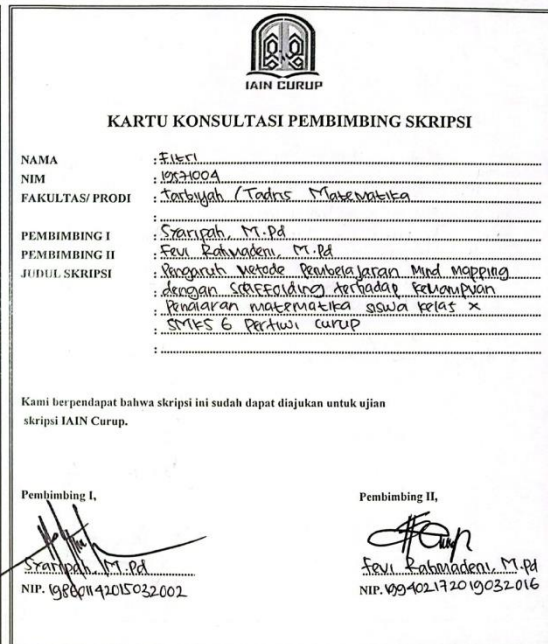 IAIN CURUP
KARTU KONSULTASI PEMBIMBING SKRIPSI
NAMA : Fitri
NIM : 19571004
FAKULTAS/ PRODI : Tarbiyah / Tadris Matematika
:
PEMBIMBING I : Syaripah, M.Pd
PEMBIMBING II : Fevi Rahmadeni, M.Pd
JUDUL SKRIPSI : Pengaruh Metode Pembelajaran Mind mapping
: dengan Scaffolding terhadap Kemampuan
: Penalaran matematika siswa kelas X
: SMKS 6 Pertiwi Curup
:
Kami berpendapat bahwa skripsi ini sudah dapat diajukan untuk ujian
skripsi IAIN Curup.
Pembimbing I,
Syaripah, M.Pd
NIP. 198601142015032002
Pembimbing II,
Fevi Rahmadeni, M.Pd
NIP. 199402172019032016